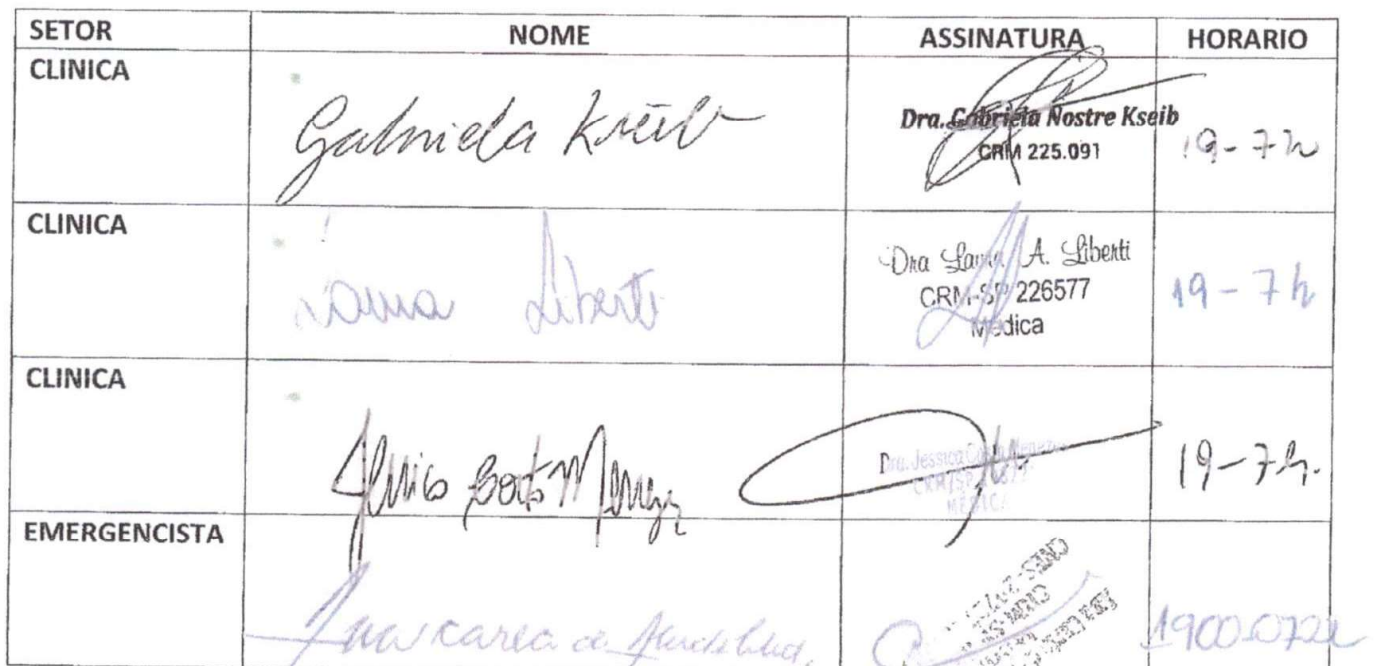 SETOR NOME ASSINATURA HORARIO
CLINICA
Gabriela Kseib
Dra. Gabriela Nostre Kseib
CRM 225.091
19-7h
CLINICA
Laura Liberti
Dra Laura A. Liberti
CRM-SP 226577
Médica
19-7h
CLINICA
Jessica Costa Menezes
Dra. Jessica Costa Menezes
CRM/SP
MÉDICA
19-7h.
EMERGENCISTA